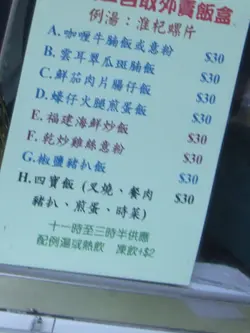 自取外賣飯盒
例湯：淮杞螺片
A. 咖喱牛腩飯或意粉 $30
B. 雲耳翠瓜斑腩飯 $30
C. 鮮茄肉片腸仔飯 $30
D. 蠔仔火腿煎蛋飯 $30
E. 福建海鮮炒飯 $30
F. 乾炒雞絲意粉 $30
G. 椒鹽豬扒飯 $30
H. 四寶飯 (叉燒、餐肉 $30
豬扒、煎蛋、時菜)
十一時至三時半供應
配例湯或熱飲 凍飲+$2